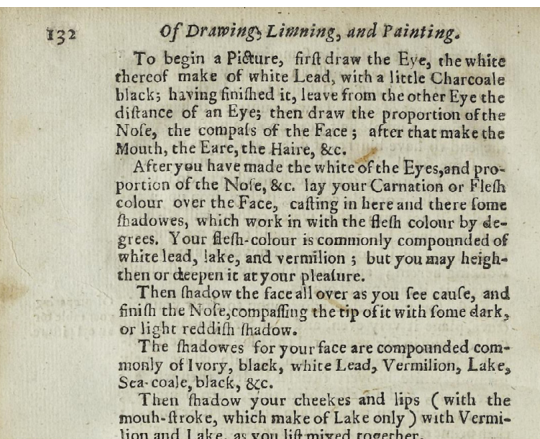 132 Of Drawing, Limning, and Painting.
To begin a Picture, first draw the Eye, the white
thereof make of white Lead, with a little Charcoale
black; having finished it, leave from the other Eye the
distance of an Eye; then draw the proportion of the
Nose, the compass of the Face; after that make the
Mouth, the Eare, the Haire, &c.
After you have made the white of the Eyes, and pro-
portion of the Nose, &c. lay your Carnation or Flesh
colour over the Face, casting in here and there some
shadowes, which work in with the flesh colour by de-
grees. Your flesh-colour is commonly compounded of
white lead, lake, and vermilion; but you may heigh-
then or deepen it at your pleasure.
Then shadow the face all over as you see cause, and
finish the Nose, compassing the tip of it with some dark,
or light reddish shadow.
The shadowes for your face are compounded com-
monly of Ivory, black, white Lead, Vermilion, Lake,
Sea-coale, black, &c.
Then shadow your cheekes and lips (with the
mouh-stroke, which make of Lake only) with Vermi-
lion and Lake, as you list mixed together.